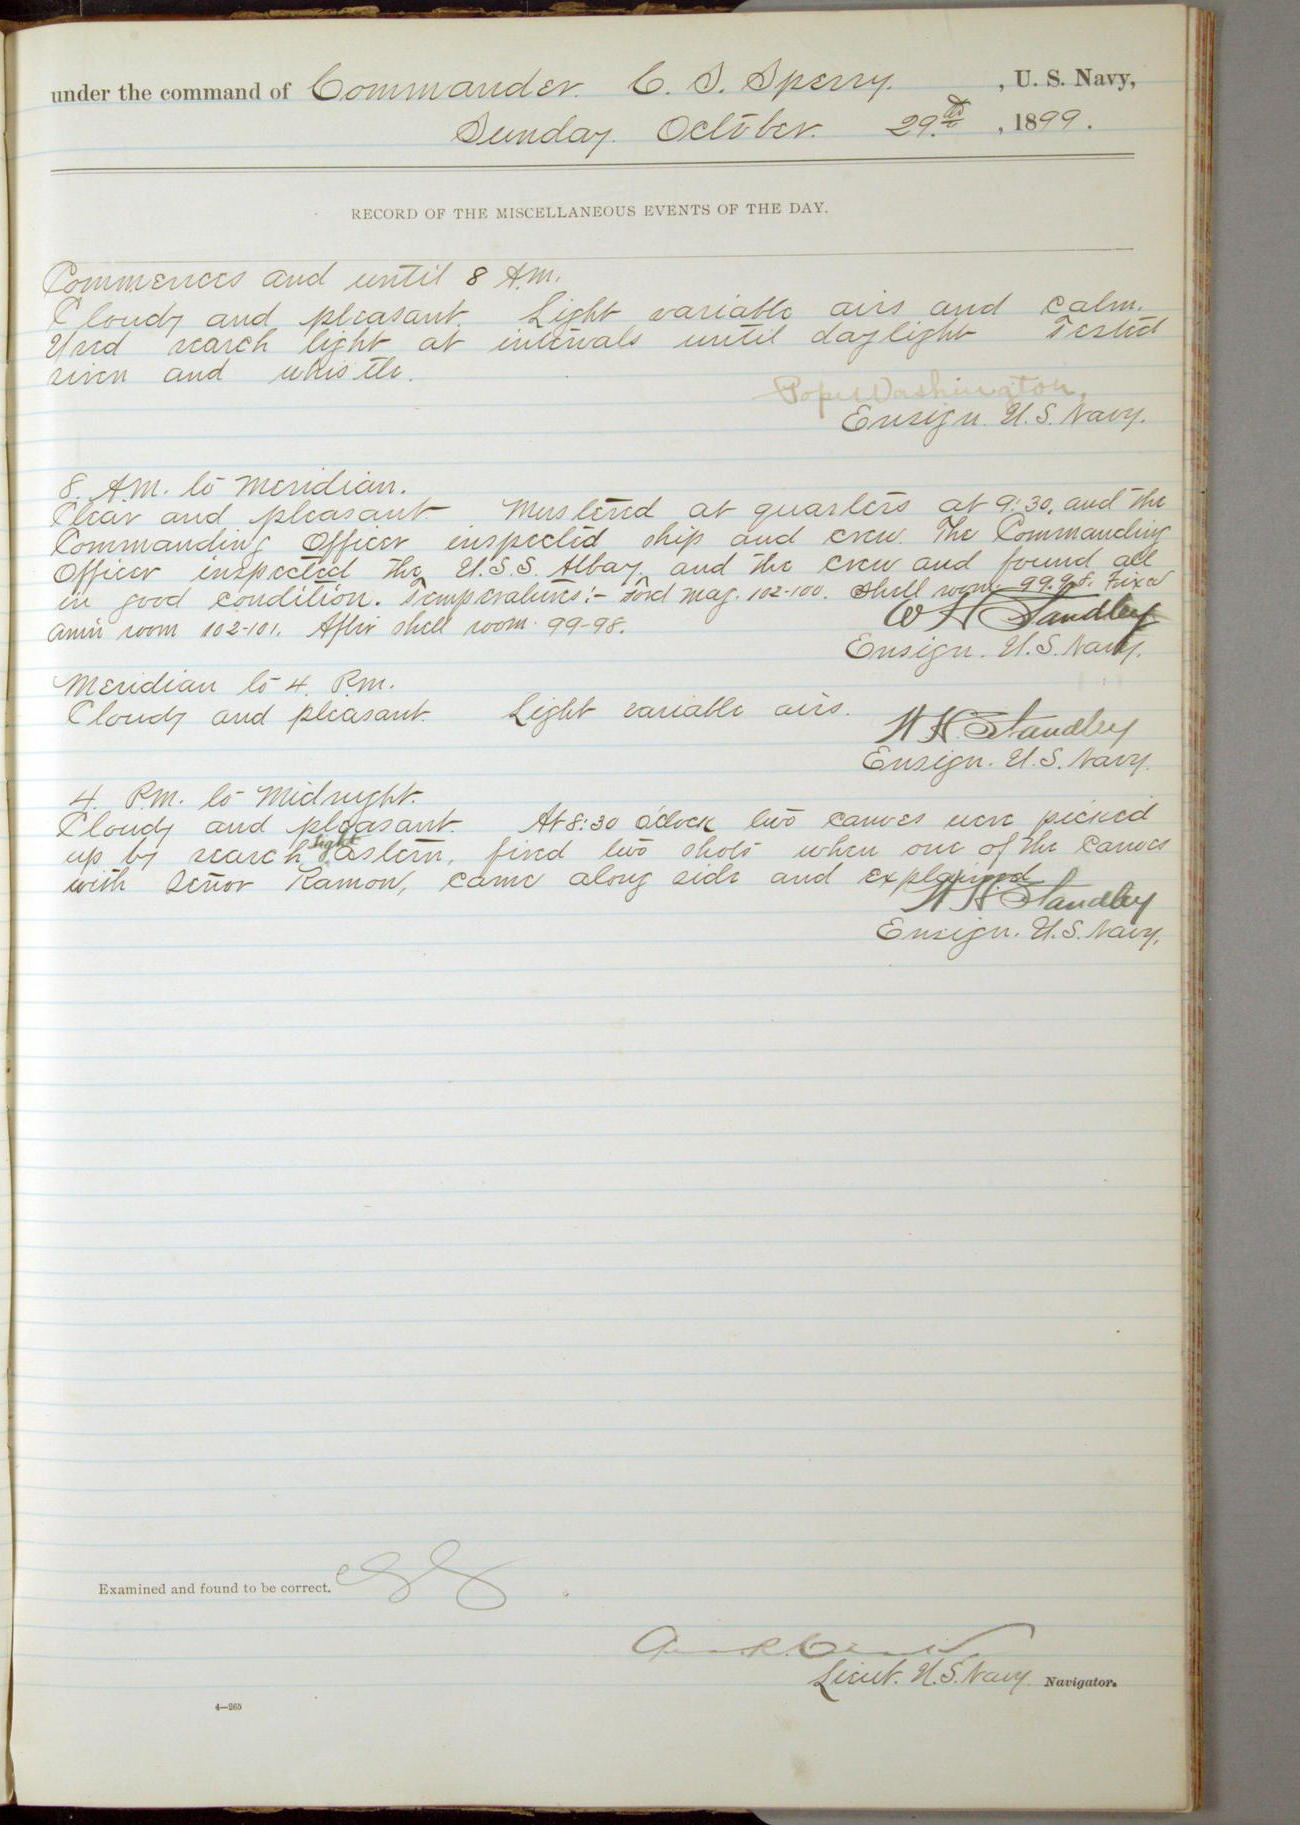 under the command of Commander. C. S. Sperry. , U. S. Navy,
Sunday. October. 29.th , 1899.
RECORD OF THE MISCELLANEOUS EVENTS OF THE DAY.
Commences and until 8 A.M.
Cloudy and pleasant. Light variable airs and calm.
Used search light at intervals until daylight Tested
siren and whistle.
Pope Washington,
Ensign. U.S. Navy.
8. A.M. to Meridian.
Clear and pleasant Mustered at quarters at 9:30, and the
Commanding Officer inspected ship and crew. The Commanding
Officer inspected the U.S.S. Albay, and the crew and found all
in good condition. Temperatures:- Ford Mag. 102-100. Shell room 99.98. Fixed
Amn room 102-101. After shell room 99-98.
W H Standley
Ensign. U.S. Navy.
Meridian to 4. P.M.
Cloudy and pleasant. Light variable airs.
W H. Standley
Ensign. U.S. Navy.
4. P.M. to Midnight.
Cloudy and pleasant. At 8:30 o'clock two canoes were picked
up by search light astern, fired two shots when one of the canoes
with Señor Ramon, came along side and explained
W H. Standley
Ensign. U.S. Navy.
Examined and found to be correct.
Lieut. U.S. Navy. Navigator.
4—265